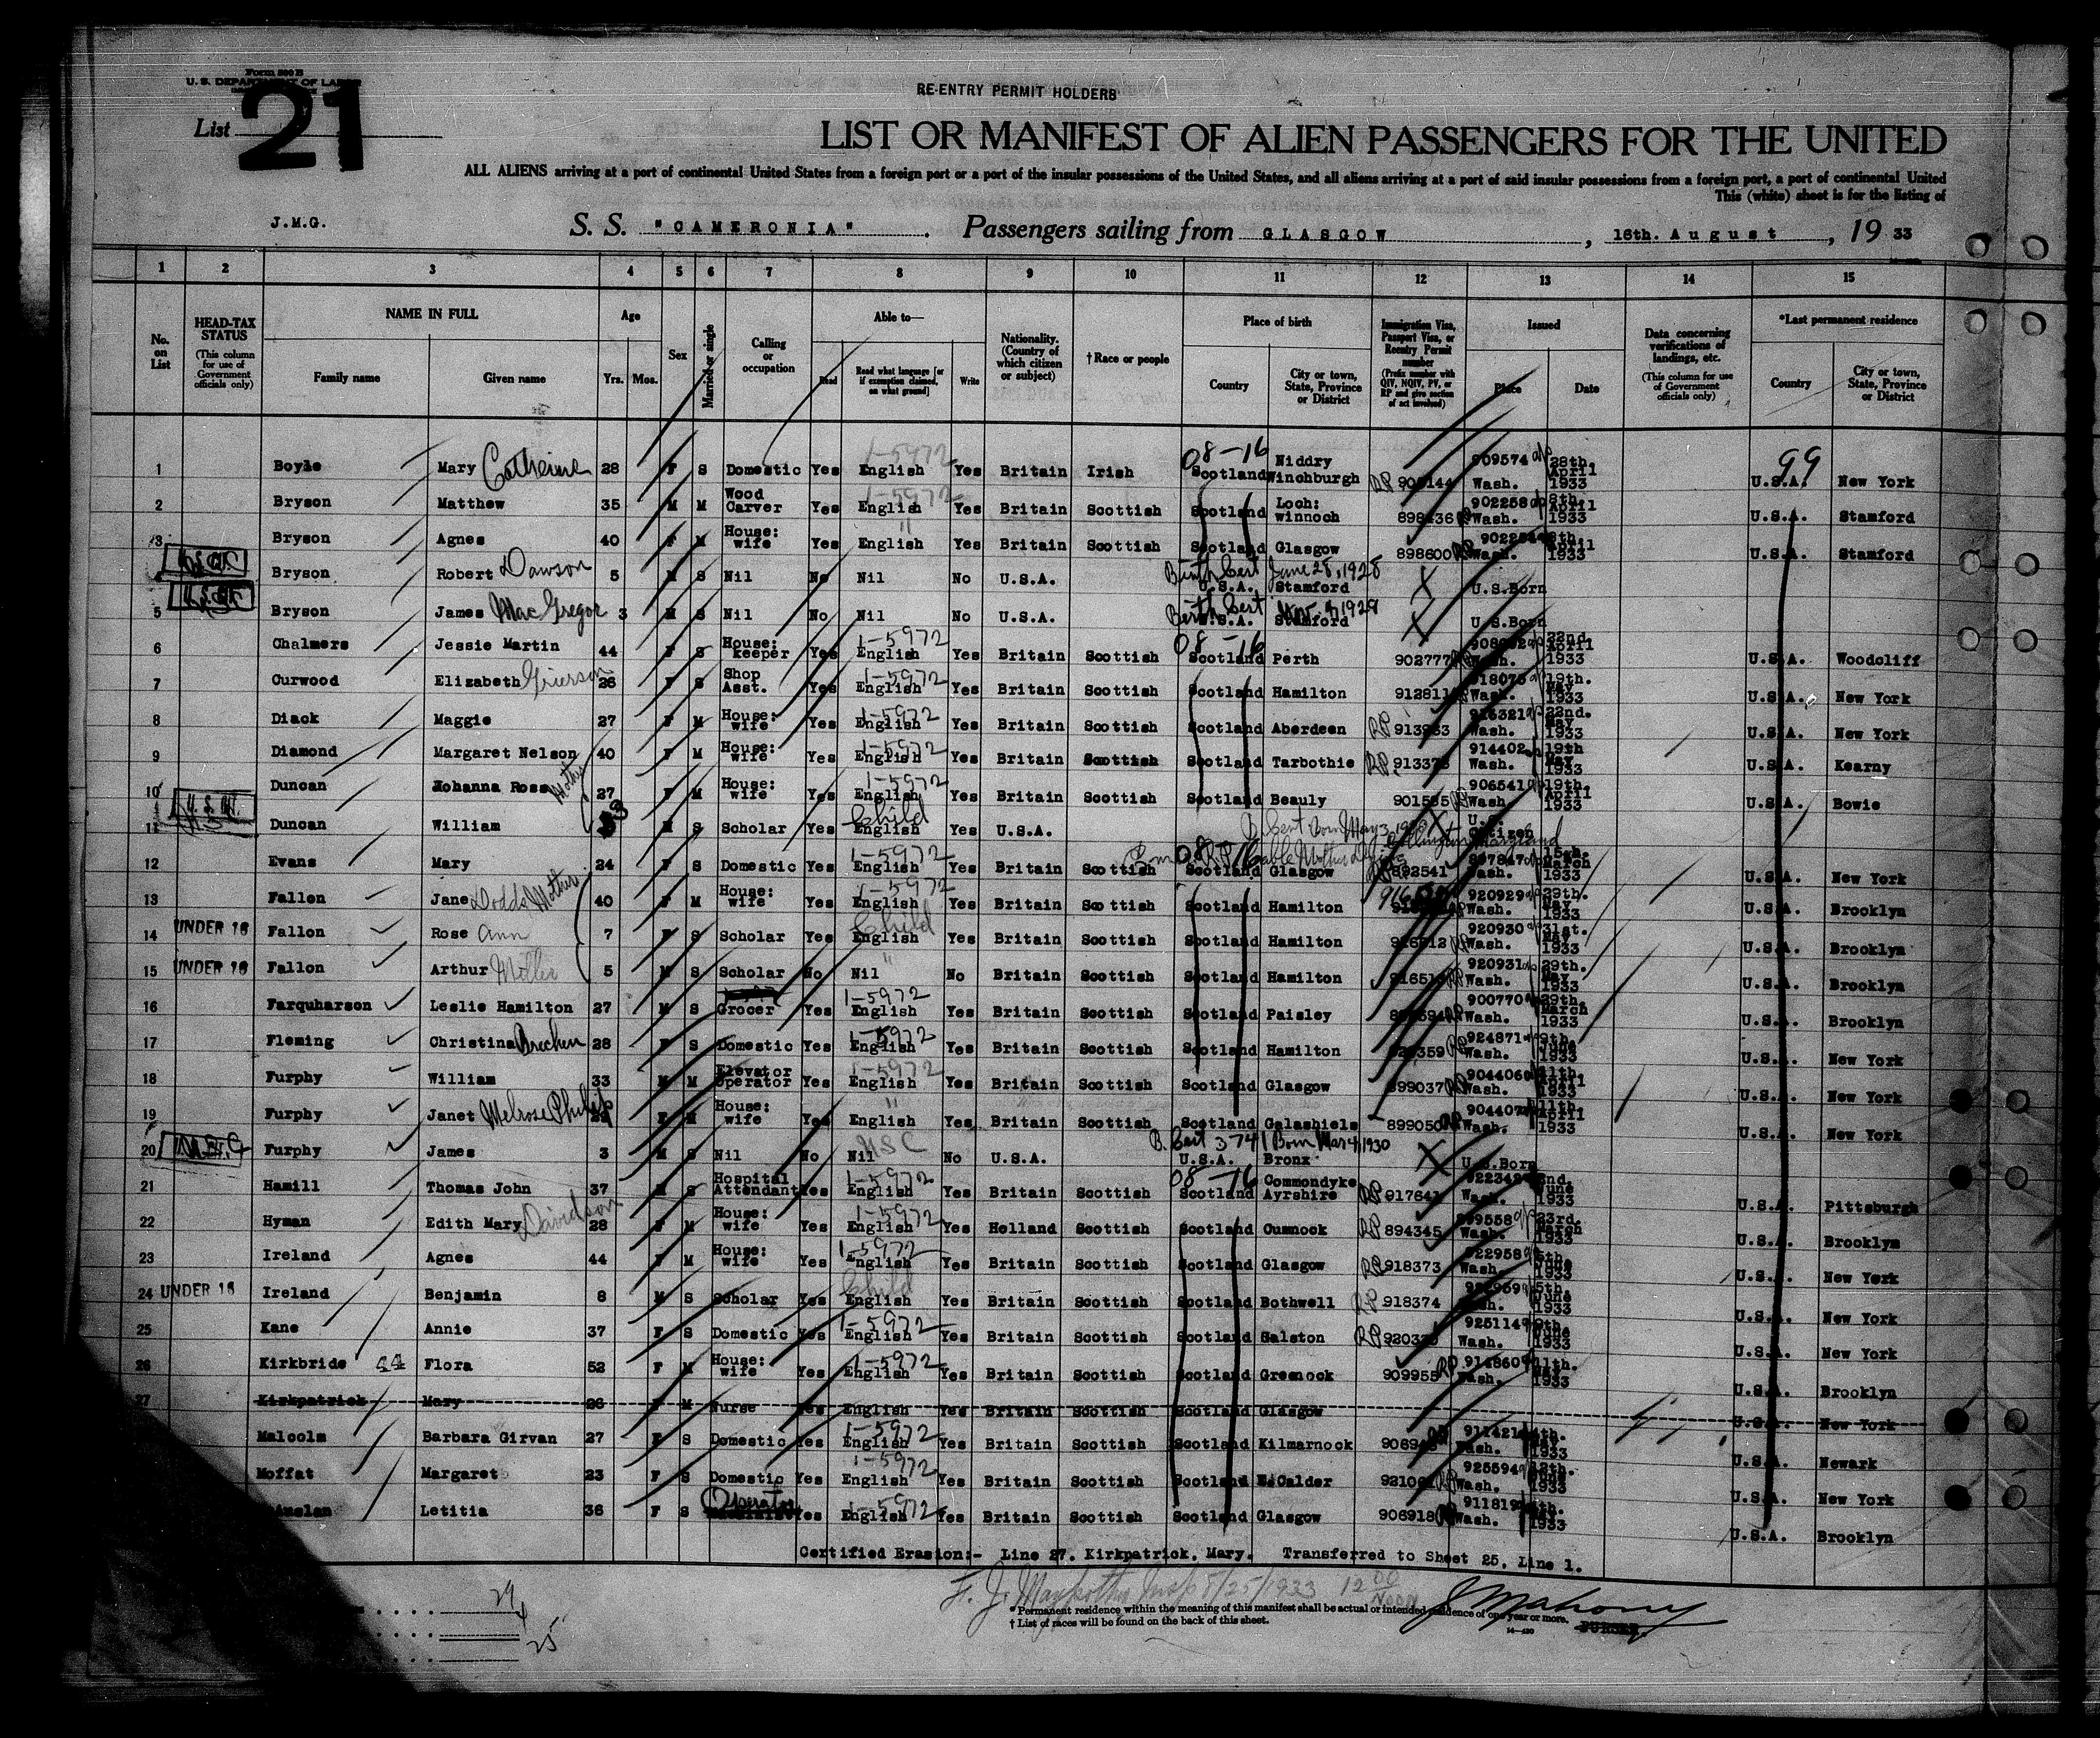 Form 500 B
U. S. DEPARTMENT OF LABOR
List 21
RE-ENTRY PERMIT HOLDERS
LIST OR MANIFEST OF ALIEN PASSENGERS FOR THE UNITED
ALL ALIENS arriving at a port of continental United States from a foreign port or a port of the insular possessions of the United States, and all aliens arriving at a port of said insular possessions from a foreign port, a port of continental United
This (white) sheet is for the listing of
J.M.G. S. S. "CAMERONIA". Passengers sailing from GLASGOW, 16th. August, 19 33
1 2 3 4 5 6 7 8 9 10 11 12 13 14 15
No. on List HEAD-TAX STATUS (This column for use of Government officials only) NAME IN FULL Family name Given name Age Yrs. Mos. Sex Married or single Calling or occupation Able to— Read Read what language [or if exemption claimed, on what ground] Write Nationality. (Country of which citizen or subject) † Race or people Place of birth Country City or town, State, Province or District Immigration Visa, Passport Visa, or Reentry Permit number (Prefix number with QIV, NQIV, PV, or RP and give section of act involved) Issued Place Date Data concerning verifications of landings, etc. (This column for use of Government officials only) *Last permanent residence Country City or town, State, Province or District
1 Boyle Mary Catherine 28 F S Domestic Yes English 1-5972 Yes Britain Irish 08-16 Scotland Niddry Winchburgh RP 909574 Wash. 28th. April 1933 99 U.S.A. New York
2 Bryson Matthew 35 M M Wood Carver Yes English 1-5972 Yes Britain Scottish Scotland Loch: winnoch 898436 902258 Wash. 8th. April 1933 U.S.A. Stamford
3 Bryson Agnes 40 F M House: wife Yes English " Yes Britain Scottish Scotland Glasgow 898600 Wash. 8th. April 1933 U.S.A. Stamford
Bryson Robert Dawson 5 M S Nil No Nil No U.S.A. Birth Cert June 28, 1928 U.S.A. Stamford X U.S.Born
5 Bryson James MacGregor 3 M S Nil No Nil No U.S.A. Birth Cert U.S.A. Stamford X U.S.Born
6 Chalmers Jessie Martin 44 F S House: keeper Yes English 1-5972 Yes Britain Scottish 08-16 Scotland Perth 902777 Wash. 22nd. April 1933 U.S.A. Woodcliff
7 Curwood Elizabeth Grierson 26 F S Shop Asst. Yes English 1-5972 Yes Britain Scottish Scotland Hamilton 912811 918075 Wash. 19th. May 1933 U.S.A. New York
8 Diack Maggie 27 F M House: wife Yes English 1-5972 Yes Britain Scottish Scotland Aberdeen RP Wash. 22nd. May 1933 U.S.A. New York
9 Diamond Margaret Nelson 40 F M House: wife Yes English 1-5972 Yes Britain Scottish Scotland Tarbothie RP 913375 914402 Wash. 19th May 1933 U.S.A. Kearny
10 Duncan Johanna Ross Mother 27 F M House: wife Yes English 1-5972 Yes Britain Scottish Scotland Beauly 901585 906541 Wash. 19th. April 1933 U.S.A. Bowie
11 Duncan William M S Scholar Yes English Child Yes U.S.A. U.S. Citizen
12 Evans Mary 24 F S Domestic Yes English 1-5972 Yes Britain Scottish 08-16 Scotland Glasgow 892541 Wash. 15th. March 1933 U.S.A. New York
13 Fallon Jane Dodds Mother 40 F M House: wife Yes English 1-5972 Yes Britain Scottish Scotland Hamilton 920929 Wash. 29th. May 1933 U.S.A. Brooklyn
14 UNDER 16 Fallon Rose Ann 7 F S Scholar Yes English Child Yes Britain Scottish Scotland Hamilton 920930 Wash. 31st. May 1933 U.S.A. Brooklyn
15 UNDER 16 Fallon Arthur Miller 5 M S Scholar No Nil " No Britain Scottish Scotland Hamilton 920931 Wash. 29th. May 1933 U.S.A. Brooklyn
16 Farquharson Leslie Hamilton 27 M S Grocer Yes English 1-5972 Yes Britain Scottish Scotland Paisley 900770 Wash. 29th. March 1933 U.S.A. Brooklyn
17 Fleming Christina Brechen 28 F S Domestic Yes English 1-5972 Yes Britain Scottish Scotland Hamilton 924871 Wash. 9th. June 1933 U.S.A. New York
18 Furphy William 33 M M Elevator Operator Yes English 1-5972 Yes Britain Scottish Scotland Glasgow 899037 904406 Wash. 11th. April 1933 U.S.A. New York
19 Furphy Janet Melrose Philip F M House: wife Yes English " Yes Britain Scottish Scotland Galashiels 899050 904407 Wash. 11th. April 1933 U.S.A. New York
20 Furphy James 3 M S Nil No Nil USC No U.S.A. B. Cert 3741 Born Mar 4, 1930 U.S.A. Bronx X U.S.Born
21 Hamill Thomas John 37 M S Hospital Attendant Yes English 1-5972 Yes Britain Scottish 08-16 Scotland Commondyke Ayrshire RP 917641 Wash. 2nd. June 1933 U.S.A. Pittsburgh
22 Hyman Edith Mary Davidson 28 F M House: wife Yes English 1-5972 Yes Holland Scottish Scotland Cumnock RP 894345 899558 Wash. 23rd. March 1933 U.S.A. Brooklyn
23 Ireland Agnes 44 F M House: wife Yes English 1-5972 Yes Britain Scottish Scotland Glasgow RP 918373 922958 Wash. 5th. June 1933 U.S.A. New York
24 UNDER 16 Ireland Benjamin 8 M S Scholar Yes English Child Yes Britain Scottish Scotland Bothwell RP 918374 922959 Wash. 5th. June 1933 U.S.A. New York
25 Kane Annie 37 F S Domestic Yes English 1-5972 Yes Britain Scottish Scotland Galston RP 925114 Wash. 9th. June 1933 U.S.A. New York
26 Kirkbride 44 Flora 52 F M House: wife Yes English 1-5972 Yes Britain Scottish Scotland Greenock 909955 RP 914860 Wash. 11th. May 1933 U.S.A. Brooklyn
27 Kirkpatrick Mary 26 F M Nurse Yes English Yes Britain Scottish Scotland Glasgow U.S.A. New York
Malcolm Barbara Girvan 27 F S Domestic Yes English 1-5972 Yes Britain Scottish Scotland Kilmarnock 911421 Wash. 1933 U.S.A. Newark
Moffat Margaret 23 F S Domestic Yes English 1-5972 Yes Britain Scottish Scotland Calder 925594 Wash. 12th. June 1933 U.S.A. New York
Letitia 36 F S Operator Yes English 1-5972 Yes Britain Scottish Scotland Glasgow 906918 911819 Wash. 1933 U.S.A. Brooklyn
Certified Erasion:- Line 27. Kirkpatrick. Mary. Transferred to Sheet 25, Line 1.
8/25/1933 12 00 Noon
* Permanent residence within the meaning of this manifest shall be actual or intended residence of one year or more.
† List of races will be found on the back of this sheet.
J Mahony
PURSER.
25